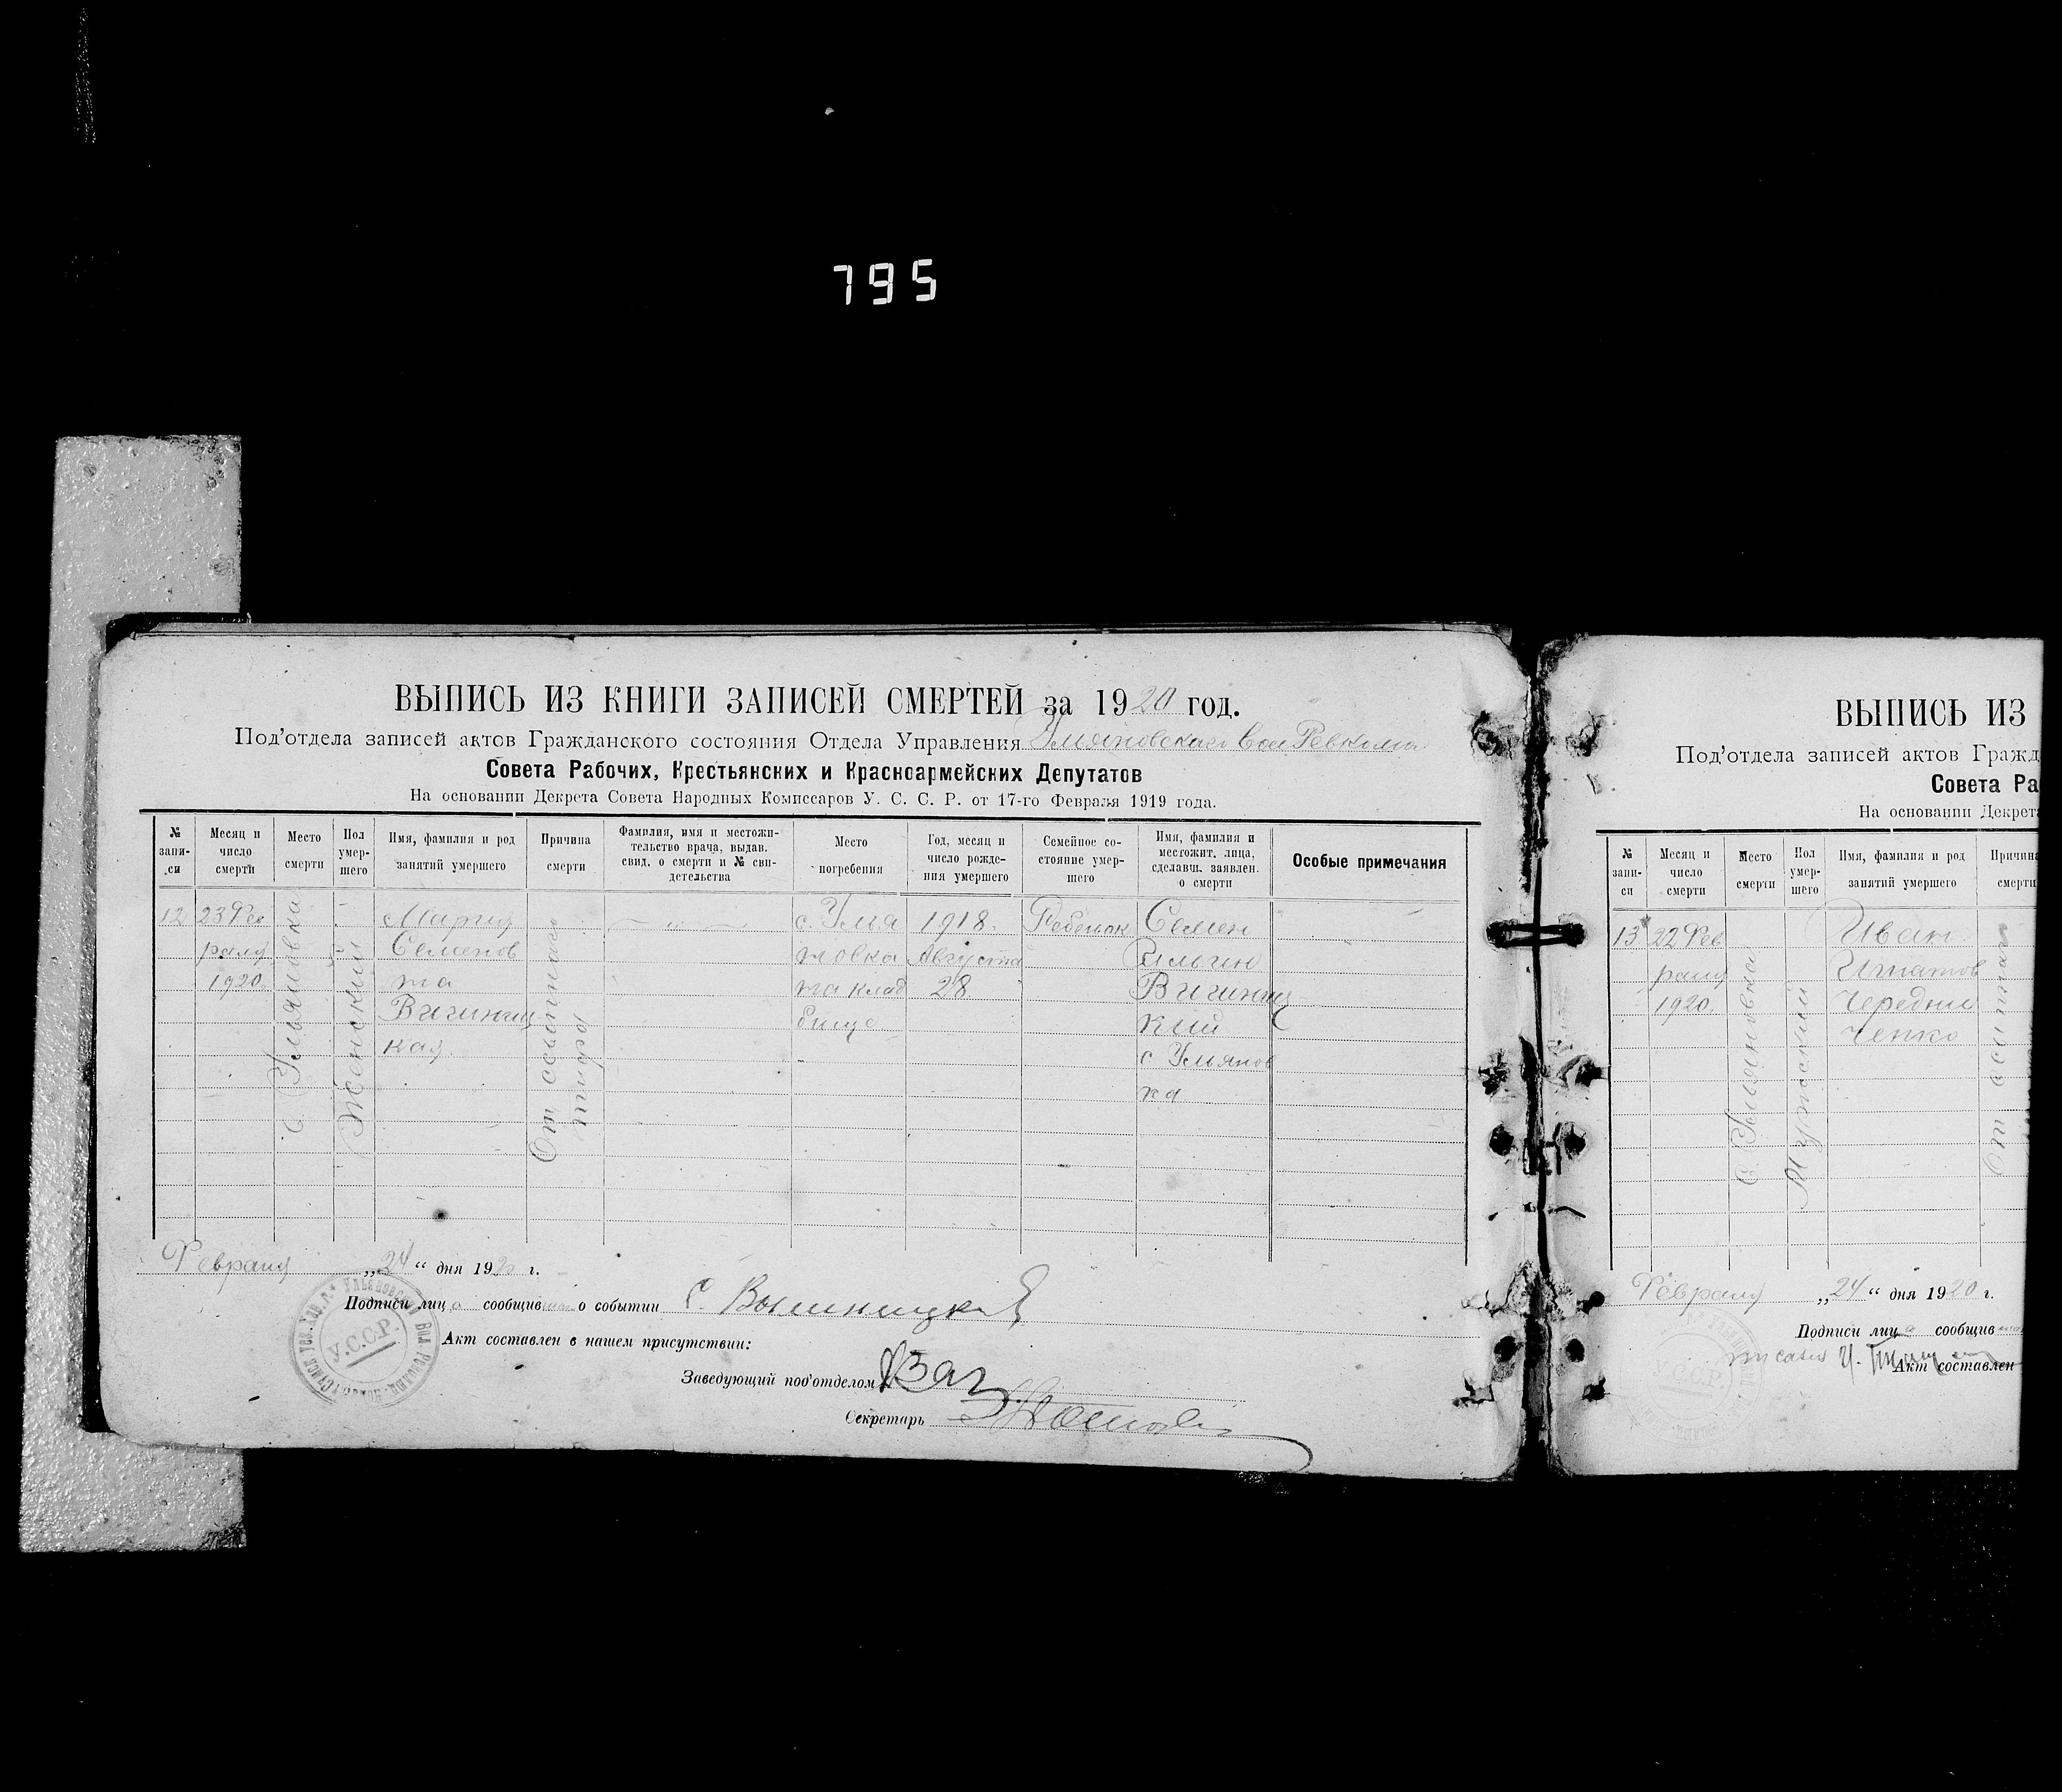 795
ВЫПИСЬ ИЗ КНИГИ ЗАПИСЕЙ СМЕРТЕЙ за 1920 год.
Под'отдела записей актов Гражданского состояния Отдела Управления Ульяновского Вол Ревкома
Совета Рабочих, Крестьянских и Красноармейских Депутатов
На основании Декрета Совета Народных Комиссаров У. С. С. Р. от 17-го Февраля 1919 года.
№ запи-си
Месяц и число смерти
Место смерти
Пол умер-шего
Имя, фамилия и род занятий умершего
Причина смерти
Фамилия, имя и местожи-тельство врача, выдав. свид. о смерти и № сви-детельства
Место погребения
Год, месяц и число рожде-ния умершего
Семейное со-стояние умер-шего
Имя, фамилия и местожит. лица, сделавш. заявлен. о смерти
Особые примечания
12
23 Фев
ралу
1920
с. Ульяновка
Женский
Мария
Семенов
на
Вигиниц
кая
От сыпного
тифа
с. Улья
новка
на клад
бище
1918.
Августа
28
Ребенок
Семен
Ильин
Вигиниц
кий
с Ульянов
ка
Февраля „24“ дня 1920 г.
Подписи лица сообщив о событии С. Вышницкий
Акт составлен в нашем присутствии:
Заведующий под'отделом
Секретарь
У.С.С.Р.
ВЫПИСЬ ИЗ
Под'отдела записей актов Гражд
Совета Ра
На основании Декрета
№ запи-си
Месяц и число смерти
Место смерти
Пол умер-шего
Имя, фамилия и род занятий умершего
Причина смерти
13
22 Фев
раля
1920.
с. Ульяновка
Мужской
Иван
Игнатов
Чередни
ченко
От сыпного
Февраля „24“ дня 1920 г.
Подписи лица сообщив
Акт составлен
С.С.Р.